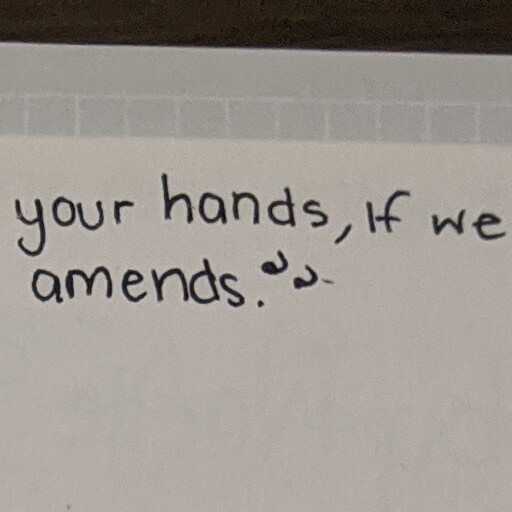 your hands, If we
amends."